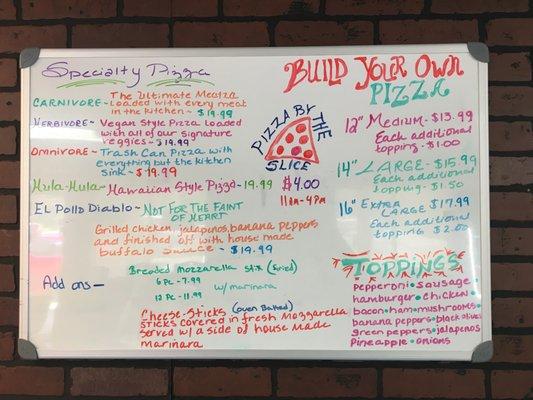 Specialty Pizza
CARNIVORE - The Ultimate Meatza
Loaded with every meat
in the kitchen - $19.99
HERBIVORE - Vegan Style Pizza Loaded
with all of our Signature
veggies - $19.99
OMNIVORE - Trash Can Pizza with
everything but the kitchen
sink - $19.99
Hula-Hula - Hawaiian Style Pizza - 19.99
El Pollo Diablo - Not for the faint
of heart
Grilled chicken, jalapenos, banana peppers
and finished off with house made
buffalo sauce - $19.99
Add ons -
Breaded Mozzarella Stix (Fried)
6 Pc - 7.99
w/ marinara
12 Pc - 11.99
Cheese-Sticks (Oven Baked)
STICKS covered in fresh Mozzarella
served w/ a side of house made
marinara
PIZZA BY THE
SLICE
$4.00
11am - 4pm
Build Your Own
Pizza
12" Medium - $13.99
Each additional
topping - $1.00
14" LARGE - $15.99
Each additional
topping - $1.50
16" Extra
Large $17.99
Each additional
topping $2.00
TOPPINGS
pepperoni • sausage
hamburger • chicken •
bacon • ham • mushrooms •
banana peppers • black olives
green peppers • jalapenos
Pineapple • onions